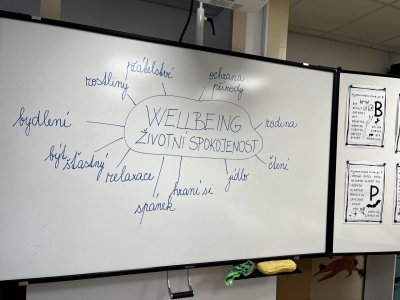 přátelství
rostliny
ochrana
přírody
bydlení
WELLBEING
ŽIVOTNÍ SPOKOJENOST
rodina
být
šťastný
relaxace
čtení
jídlo
hraní si
spánek
B
P